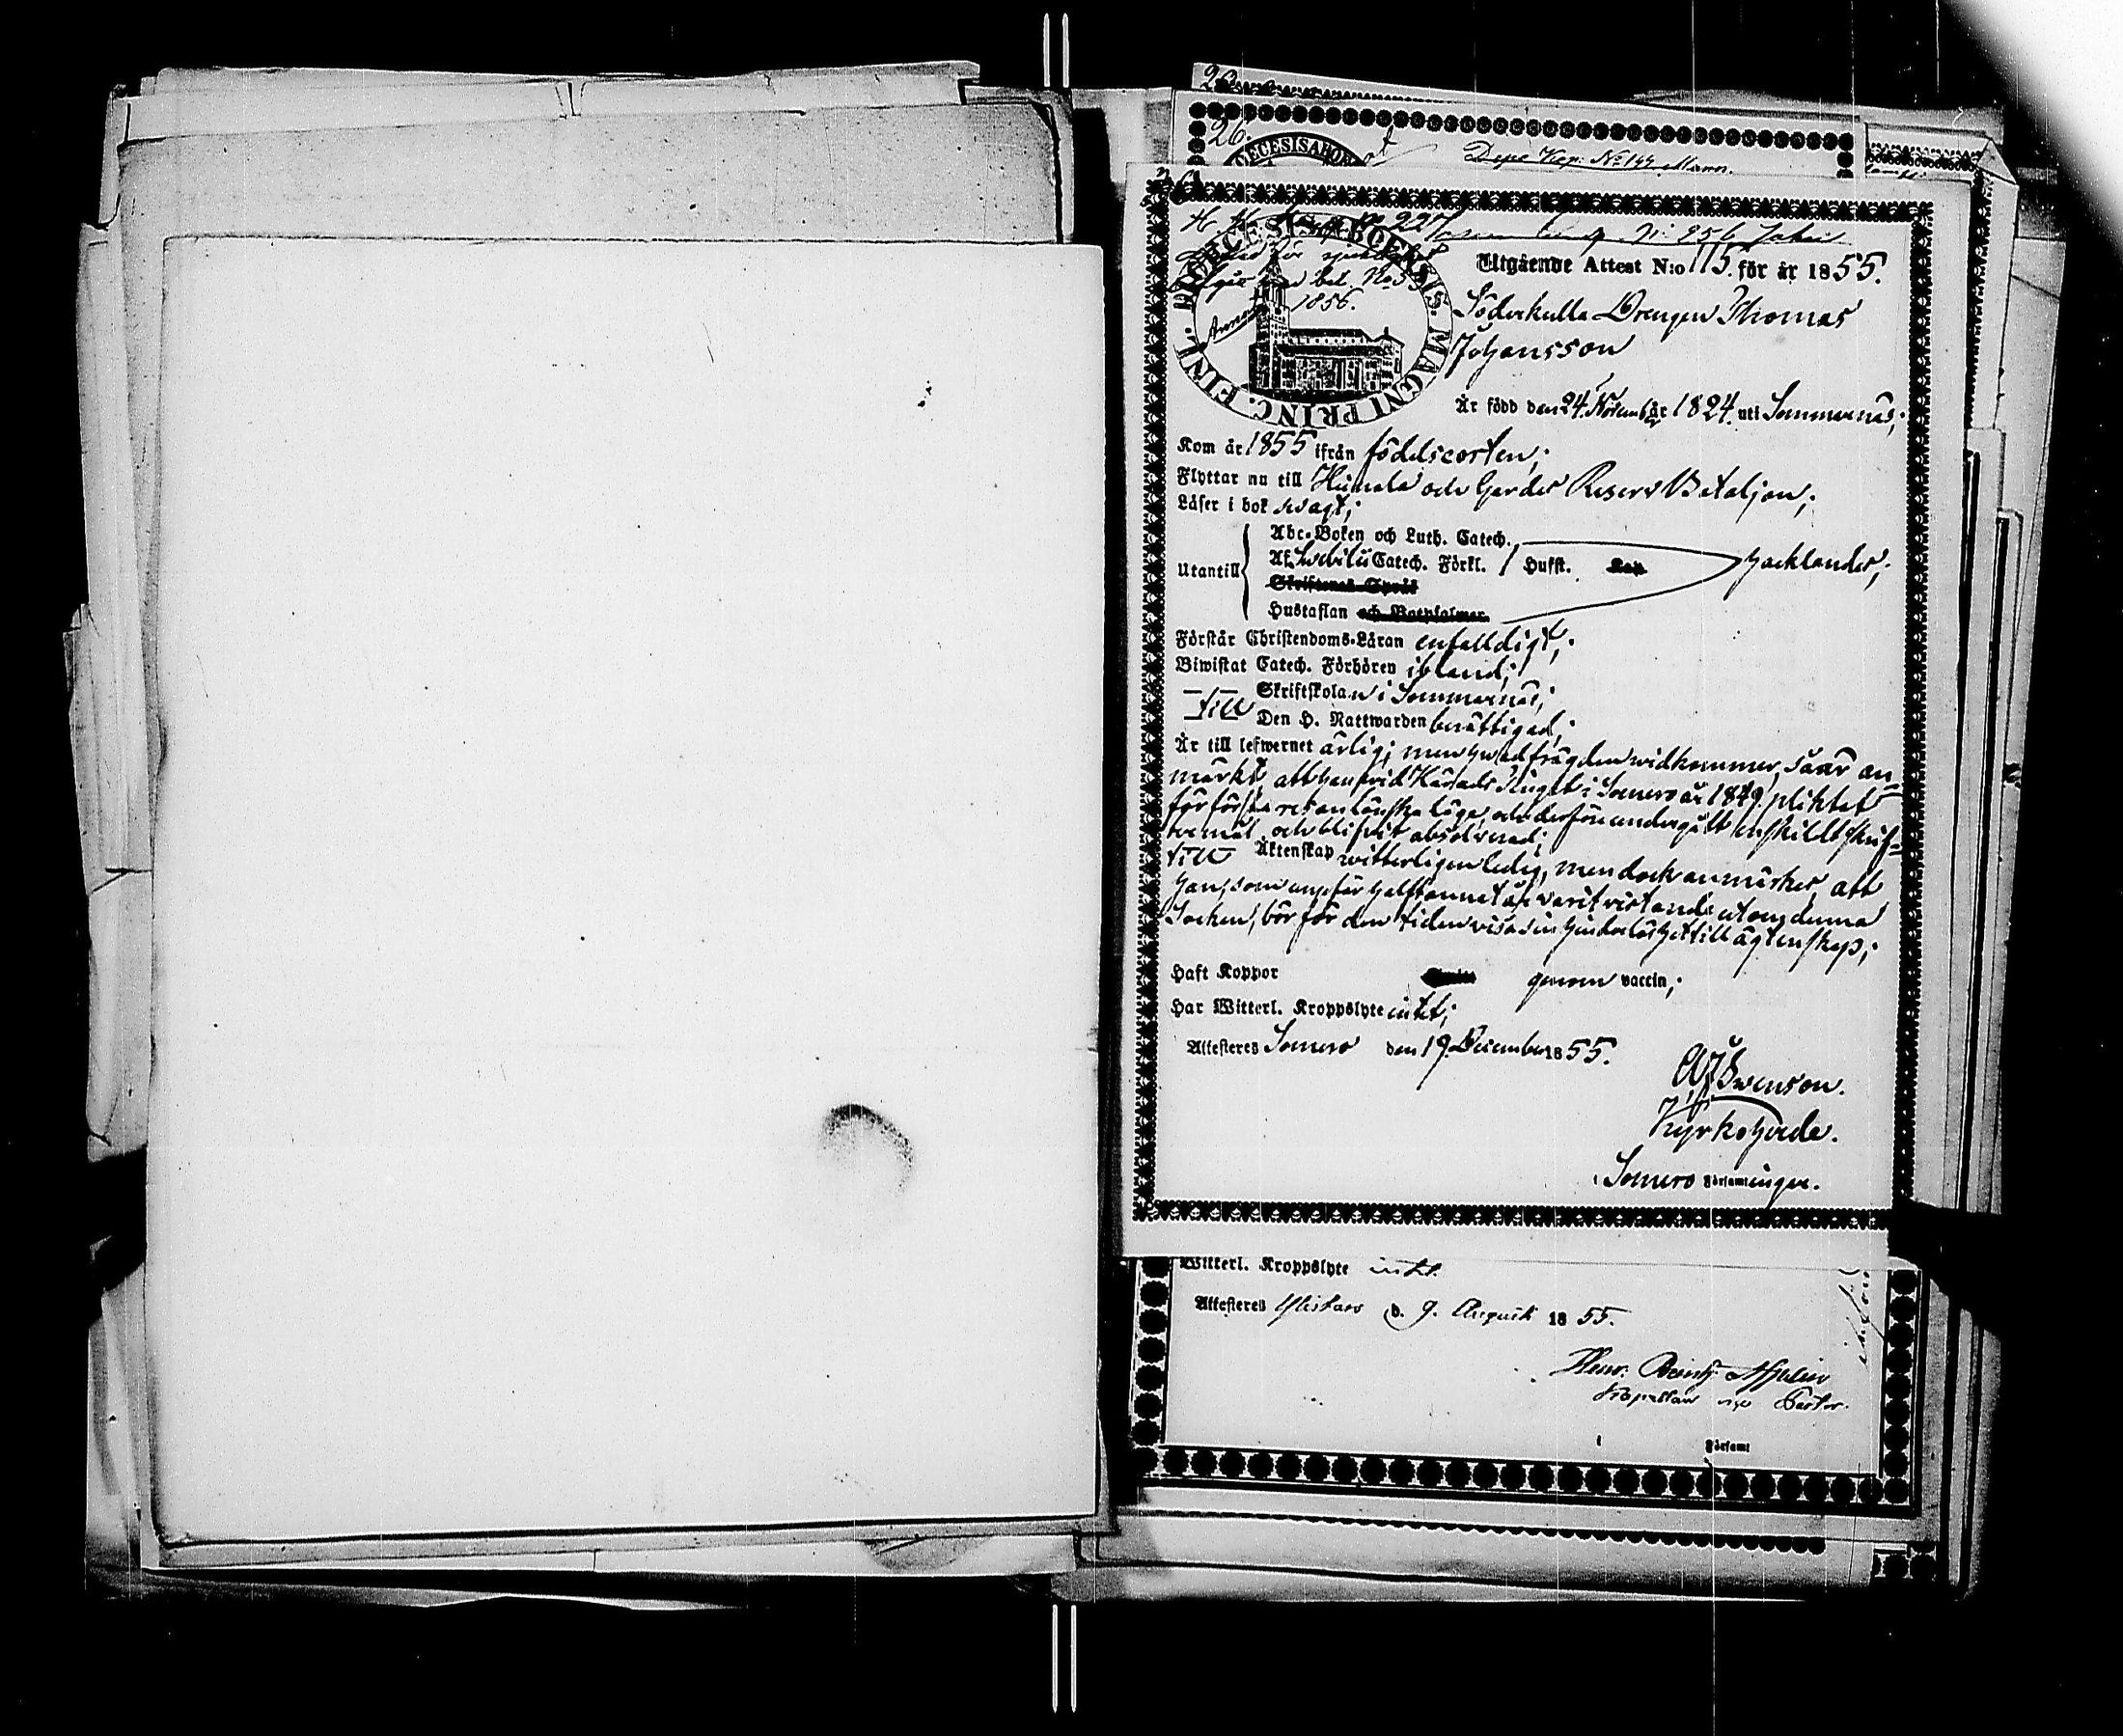 26.
Depe Kep: No 144 Mann.
DIOECESIS ABOENSIS. MAGNI PRINC. FINL.
1856.
Utgående Attest N:o 115. för år 1855.
Söderkulla Drengen Thomas
Johansson
Är född den 24. Novemb är 1824. uti Sommarnäs;
Kom år 1855 ifrån födelseorten;
Flyttar nu till Heinola och Gardes Reserv Bataljon;
Läser i bok svagt;
Abc-Boken och Luth. Catech.
Utantill Af Svebilii Catech. Förkl. / Husst. Kap. hacklandes;
Skriftenes Språk
Hustaflan och Botpsalmer.
Förstår Christendoms-Läran enfalldigt;
Biwistat Catech. Förhören ibland;
Skriftskolan i Sommarnäs;
till Den H. Nattwarden berättigad;
Är till lefwernet ärlig; men hvad frägden widkommer, så är an-
märkt, att han wid Härads Tinget i Somero år 1849 pliktat
för första resan lönska läge, och derföre undergått enskildt skrif-
termål, och blifvit absolverad;
till Äktenskap witterligen ledig, men dock anmärkes att
han, som ungefär halftannat år varit vistande utom denna
Socken, bör för den tiden visa sin hinderlöshet till ägtenskap;
Haft Koppor genom vaccin;
Har Witterl. Kroppslyte intet;
Attesteres Somero den 19 December 1855.
Swenson.
Kyrkoherde.
i Somero Församlingen.
Witterl. Kroppslyte intet.
Attesteres Ylistaro d. 9. Augusti 1855.
Kapellan vice Pastor.
i Församl